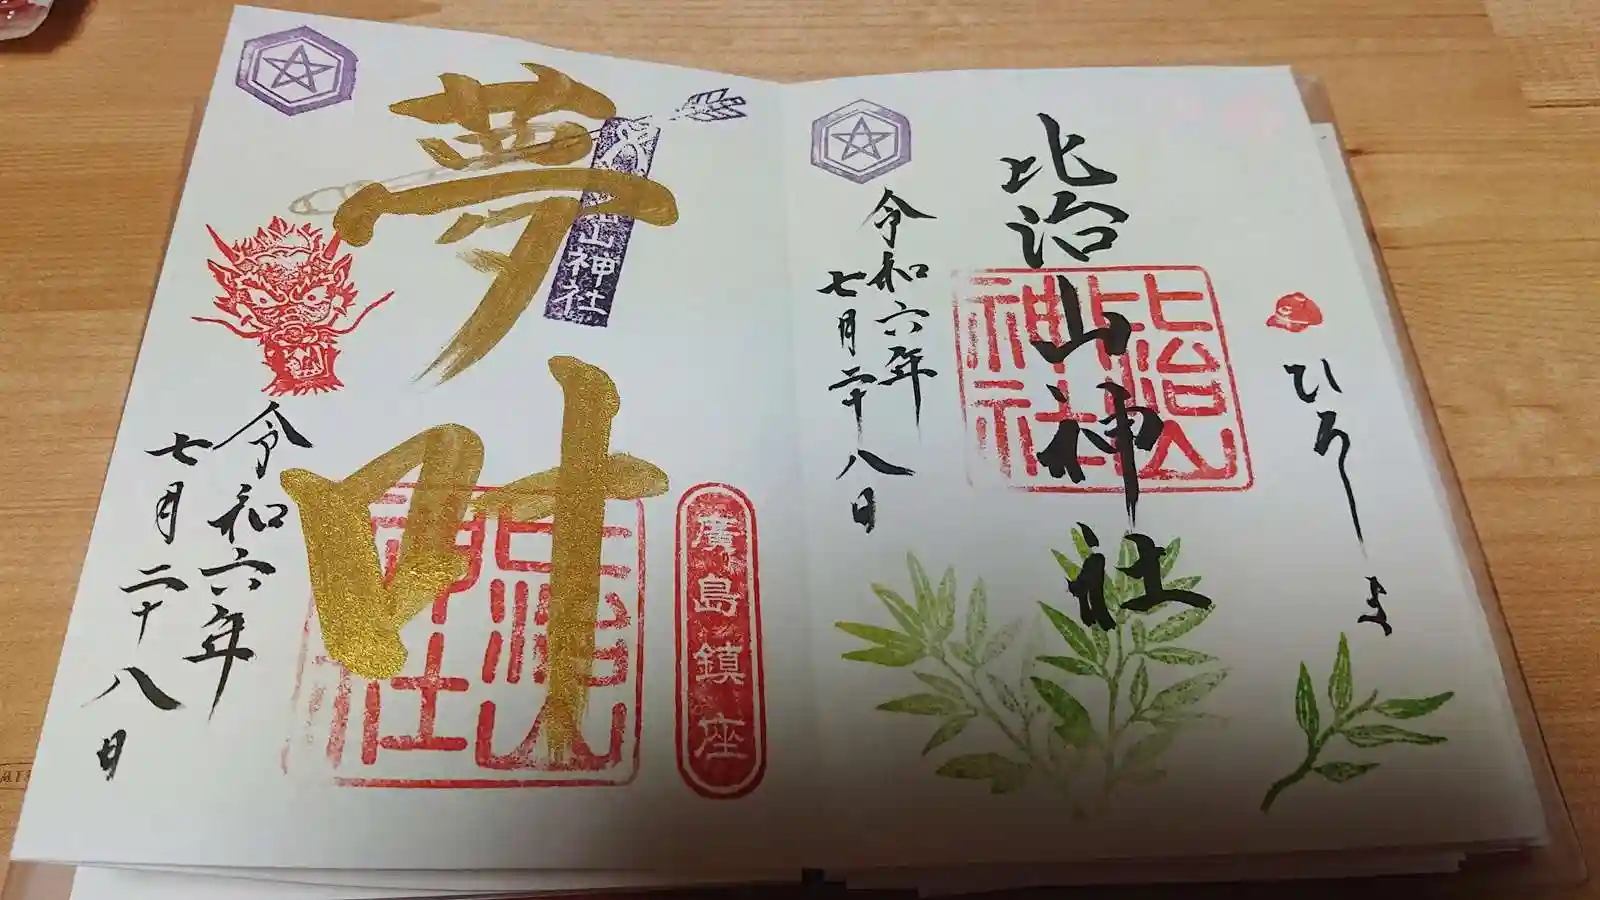 ひろしま
比治山神社
比治山
神社
令和六年
七月二十八日
廣島鎮座
山神社
夢叶
令和六年
七月二十八日